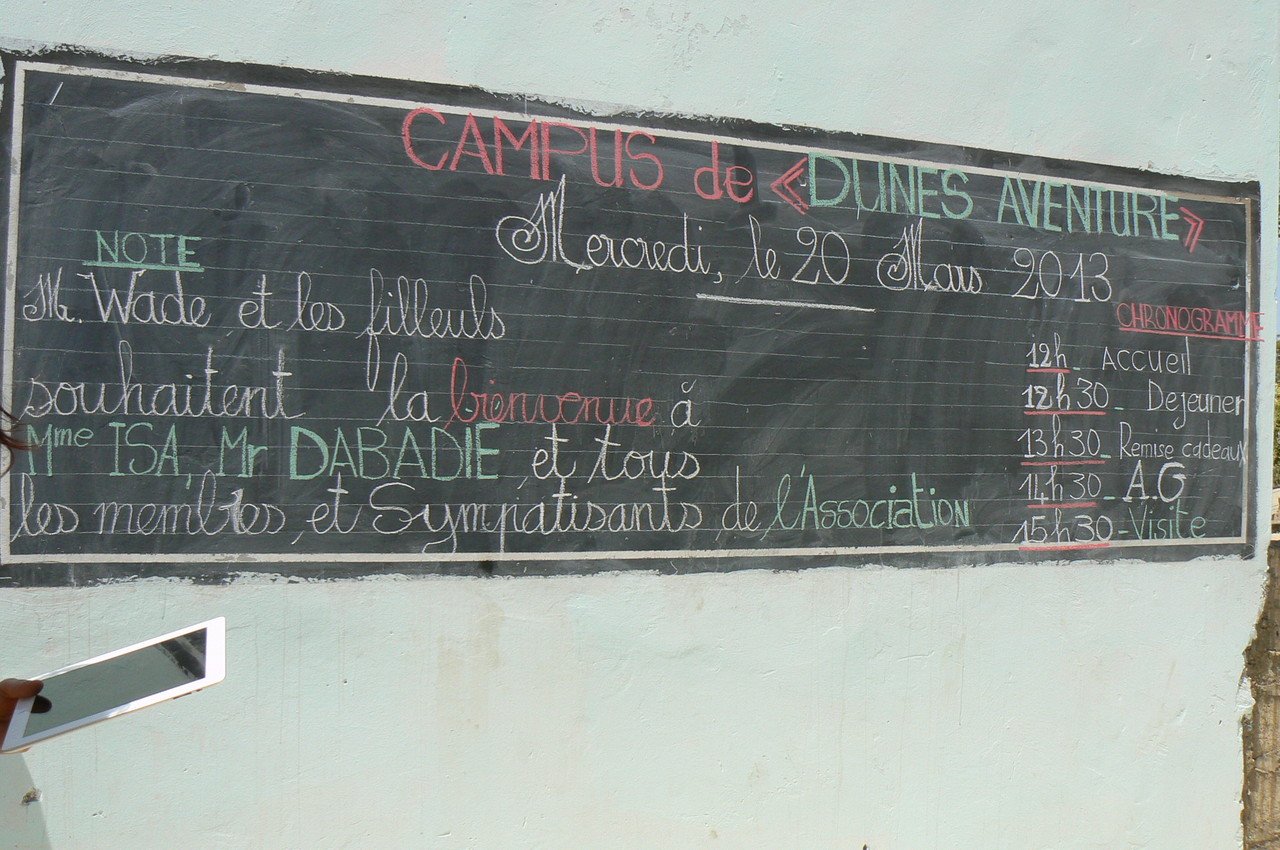 CAMPUS de «DUNES AVENTURE»
Mercredi, le 20 Mars 2013
NOTE
M. Wade et les filleuls
souhaitent la bienvenue à
Mme ISA, Mr DABADIE et tous
les membres et Sympatisants de l'Association
CHRONOGRAMME
12h_ Accueil
12h30_ Dejeuner
13h30_ Remise cadeaux
14h30_ A.G
15h30-Visite